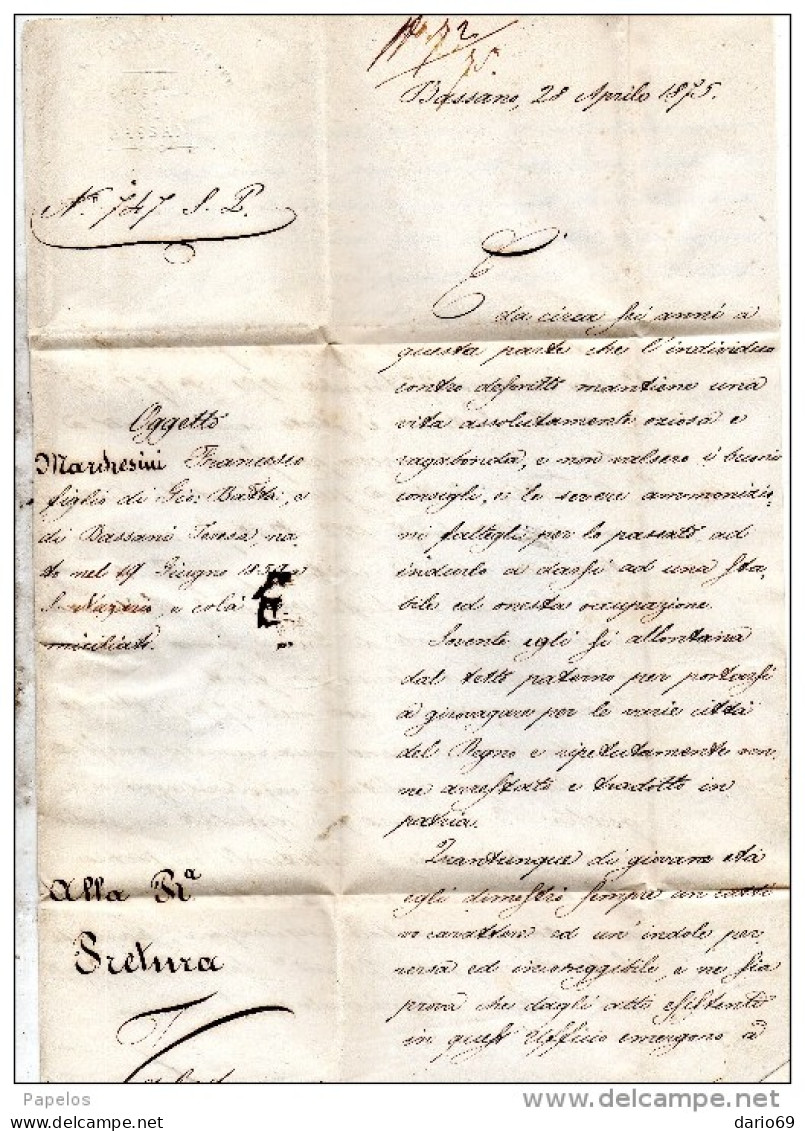 No. 72
75
Bassano, 28 Aprile 1875.
No. 747 S. P.
È da circa sei anni a
questa parte che l'individuo
contro descritto mantiene una
vita assolutamente oziosa e
vagabonda, e non valsero i buoni
consigli, e le severe ammonizio,
ni fattegli per lo passato ad
indurlo a darsi ad una sta,
bile ed onesta occupazione.
Sovente egli si allontana
dal tetto paterno per portarsi
a girovagare per le varie città
del Regno e ripetutamente ven,
ne arrestato e tradotto in
patria.
Quantunque di giovane età
egli dimostrò sempre un catti
vo carattere ed un'indole per,
versa ed incorreggibile, e ne sia
prova che dagli atti esistenti
in quest'Ufficio emergono a
Oggetto
Marchesini Francesco
figlio di Gio: Batta, e
di Bassani Teresa, na,
to nel 19 Giugno a
S. Nazario, e colà
miciliato.
Alla Ra
Pretura
Papelos
delcampe.net
dario69